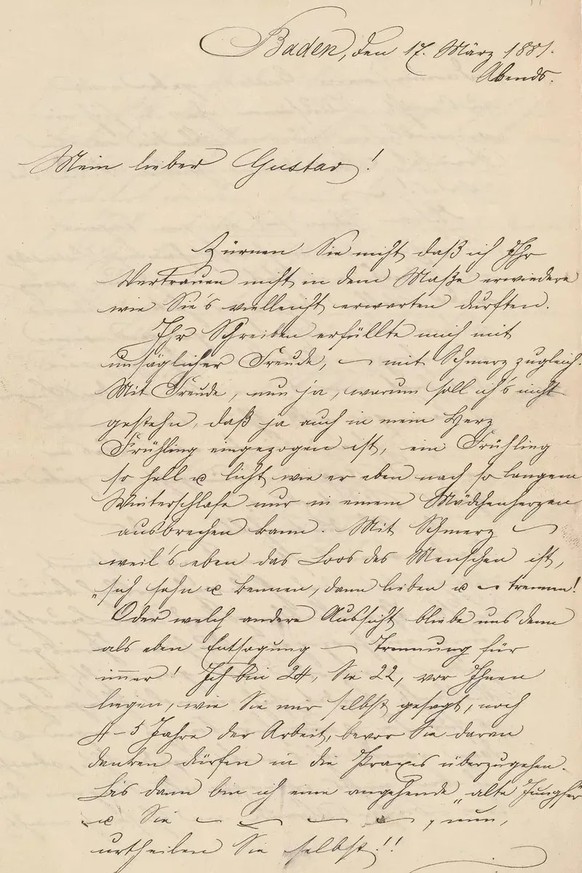 Baden, den 17. März 1881.
Abends.
Mein lieber Gustav!
Zürnen Sie nicht daß ich Ihr
Vertrauen nicht in dem Maße erwiedere
wie Sie's vielleicht erwarten durften.
Ihr Schreiben erfüllte mich mit
unsäglicher Freude, – mit Schmerz zugleich.
Mit Freude, nun ja, warum soll ich's nicht
gestehn, daß ja auch in mein Herz
Frühling eingezogen ist, ein Frühling
so hell u licht wie er eben nach so langem
Winterschlafe nur in einem Mädchenherzen
ausbrechen kann. Mit Schmerz –
weil's eben das Loos des Menschen ist,
"sich sehn u kennen, dann lieben u – trennen!
Oder welch andere Aussicht bliebe uns denn
als eben Entsagung – Trennung für
immer! Ich bin 24, Sie 22, vor Ihnen
liegen, wie Sie mir selbst gesagt, noch
4–5 Jahre der Arbeit, bevor Sie daran
denken dürfen in die Praxis überzugehen.
Bis dann bin ich eine angehende "alte Jungfer
u Sie – – – – – , nun,
urtheilen Sie selbst!!